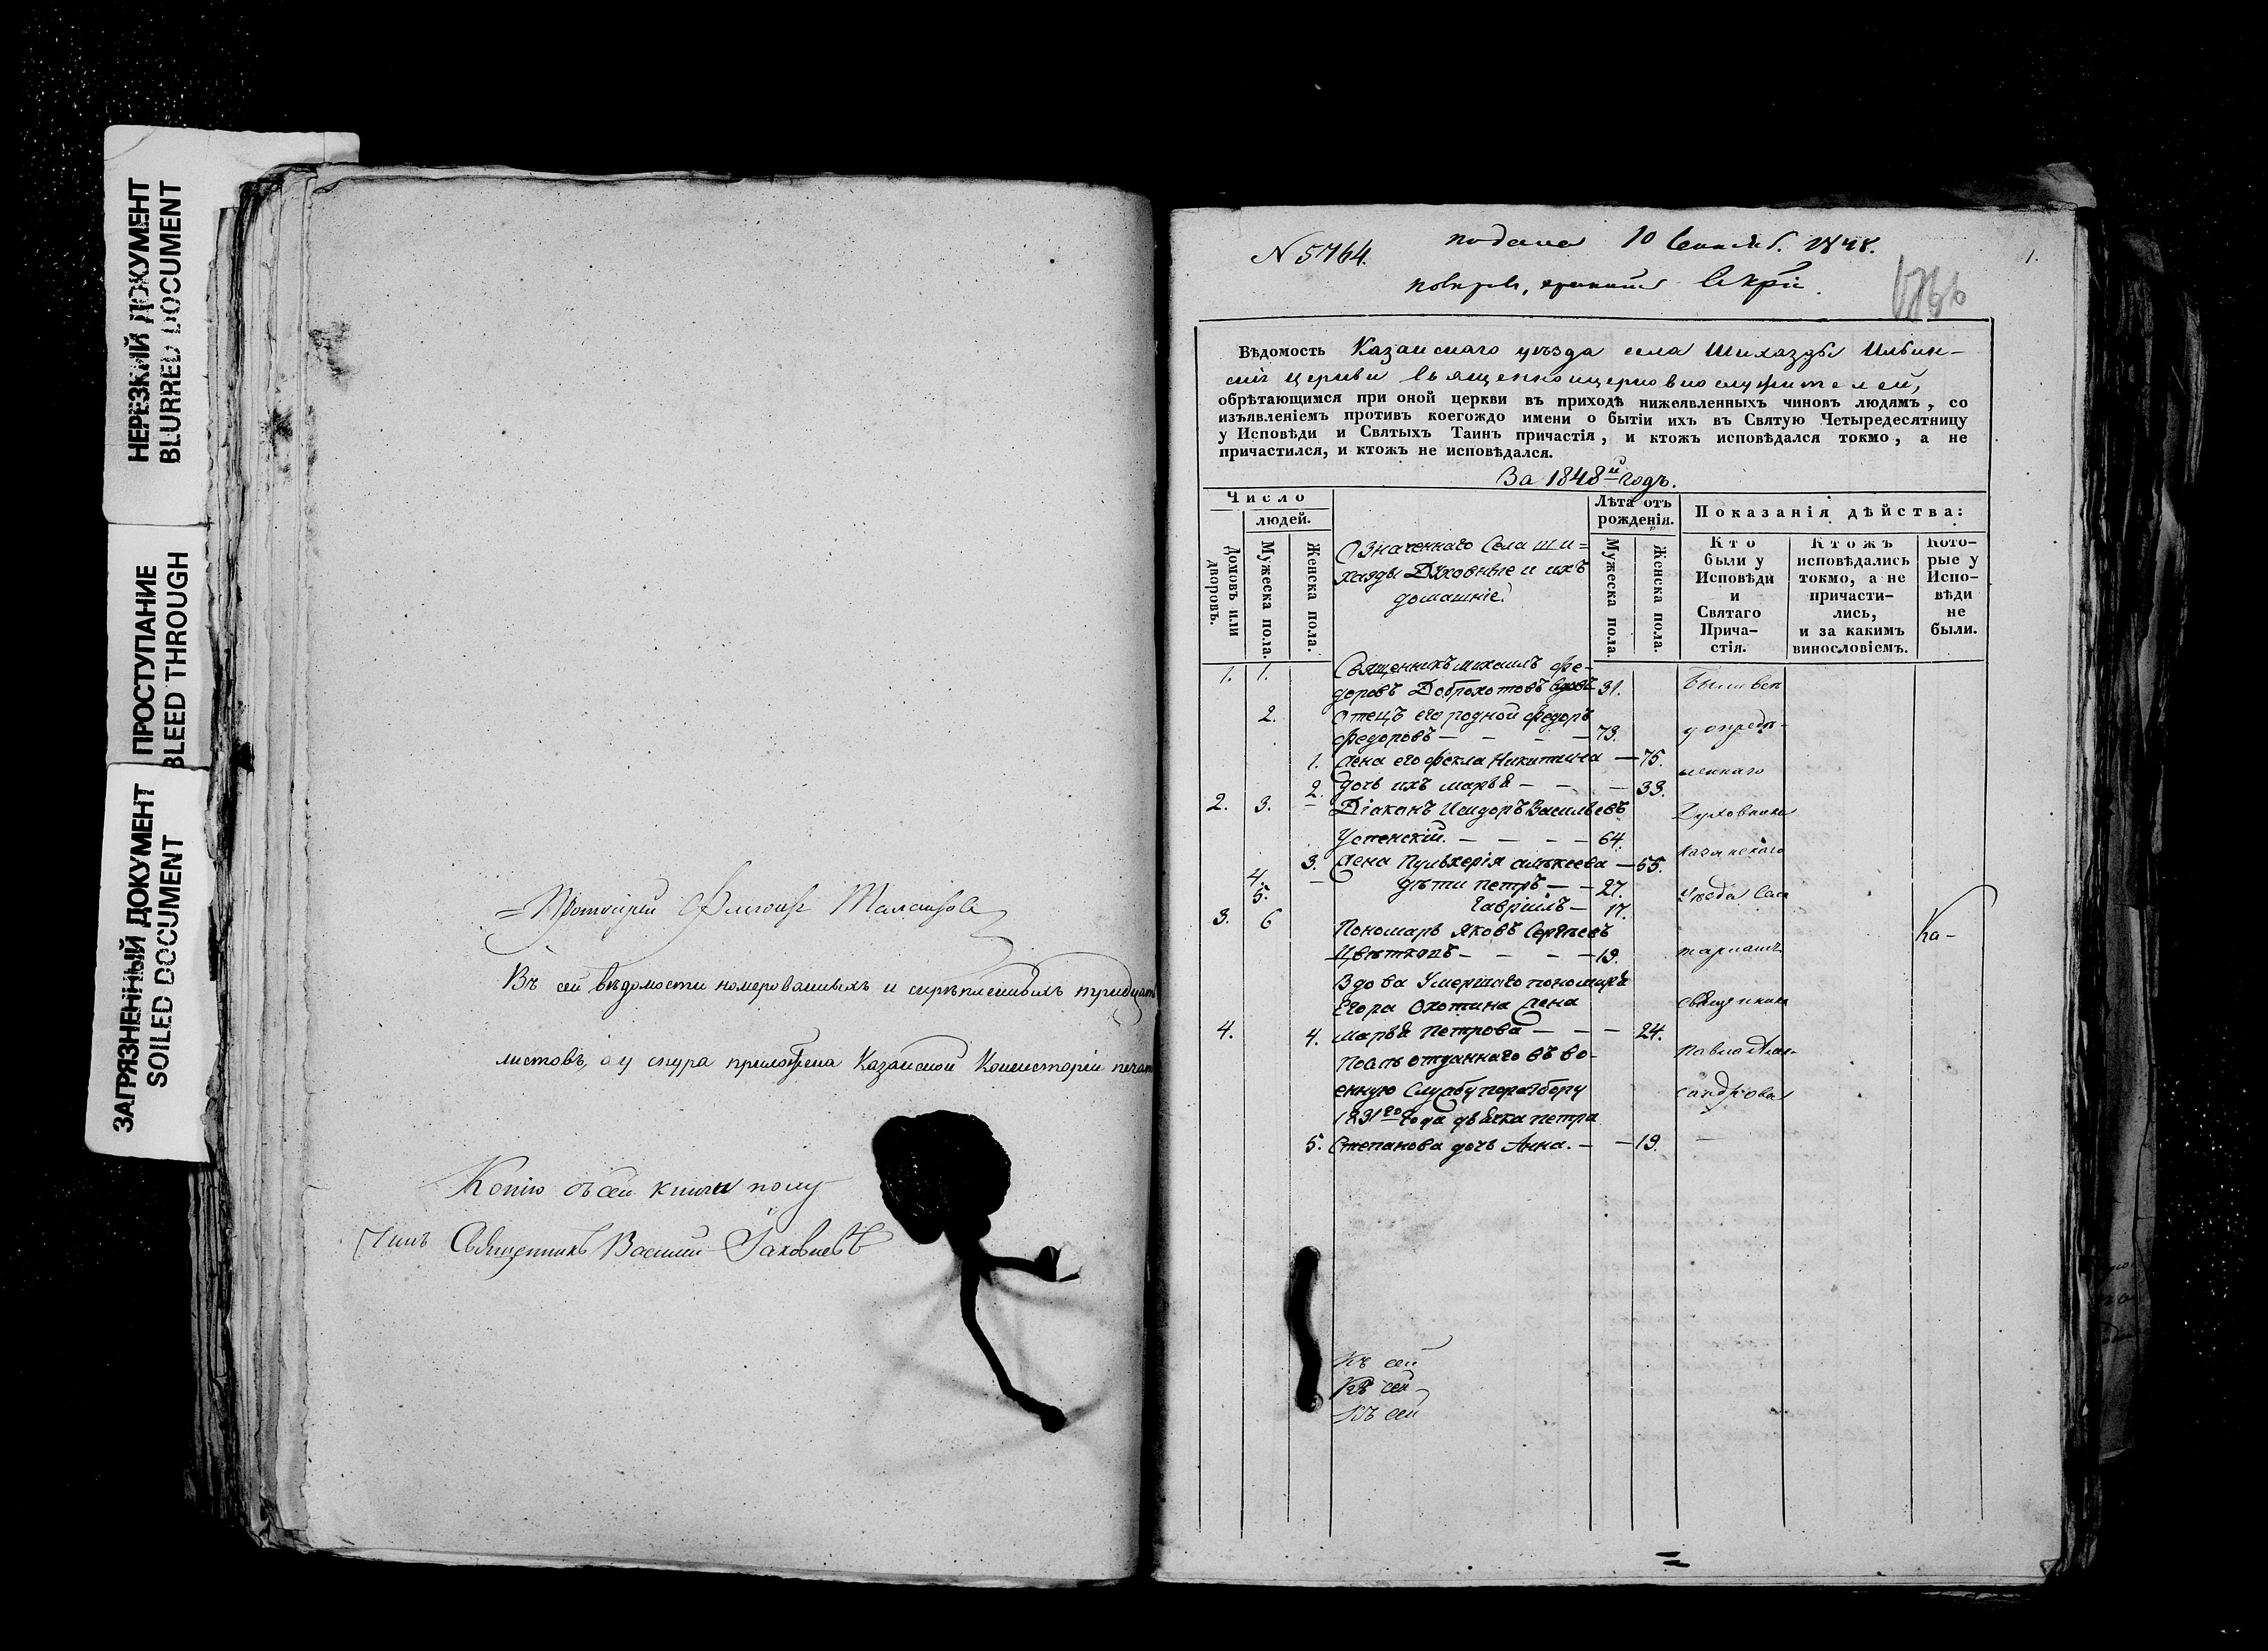 НЕРЕЗКИЙ ДОКУМЕНТ
BLURRED DOCUMENT
ПРОСТУПАНИЕ
BLEED THROUGH
ЗАГРЯЗНЕННЫЙ ДОКУМЕНТ
SOILED DOCUMENT
Протоіерей
Въ сей вѣдомости номерованныхъ и скрѣпленныхъ тридцать
листовъ, а у снура приложена Казанской Консисторіи печать
Копію съ сей книги полу
чилъ Священникъ Василій Яковлевъ
N 5764.
подана 10 Сентяб. 1848.
1.
Вѣдомость Казанскаго уѣзда села Шихазды Ильин-
ской церкви Священноцерковнослужителей,
обрѣтающимся при оной церкви въ приходѣ нижеявленныхъ чиновъ людямъ, со
изъявленіемъ противъ коегождо имени о бытіи ихъ въ Святую Четыредесятницу
у Исповѣди и Святыхъ Таинъ причастія, и ктожъ исповѣдался токмо, а не
причастился, и ктожъ не исповѣдался.
За 1848й годъ.
Число
людей.
Домовъ или дворовъ.
Мужеска пола.
Женска пола.
Означеннаго Села Ши=
хазды Духовные и ихъ
домашніе.
Лѣта отъ рожденія.
Мужеска пола.
Женска пола.
Показанія дѣйства:
Кто были у Исповѣди и Святаго Прича-стія.
Ктожъ исповѣдались токмо, а не причасти-лись, и за какимъ винословіемъ.
Кото-рые у Испо-вѣди не были.
1. 1. Священникъ Михаилъ Фе-
доровъ Доброхотовъ вдовъ 31. Были всѣ
2. Отецъ его родной Федоръ
Федоровъ — — — 73. у опредѣ-
1. Жена его Фекла Никитина — 75.
леннаго
2. Дочь ихъ Марья — — — 33.
2. 3. — Діаконъ Исидоръ Васильевъ Духовника
Успенскій. — — — — 64.
3. Жена Пульхерія Алексеева — 55. Казанскаго
4. — дѣти Петръ — — 27.
5. Гавріилъ — 17. Уѣзда Села
3. 6 Пономарь Яковъ Сергѣевъ Ка-
Цвѣтковъ — — — — 19.
Вдова Умершаго пономаря
Егора Охотина Жена священника
4. 4. Марья Петрова — — — 24.
Послѣ отданнаго въ во- Павла Алек-
енную Службу поразбору сандрова
1831го Года дьячка Петра
5. Степанова дочь Анна. — — 19. —
Къ сей
Къ сей
Къ сей